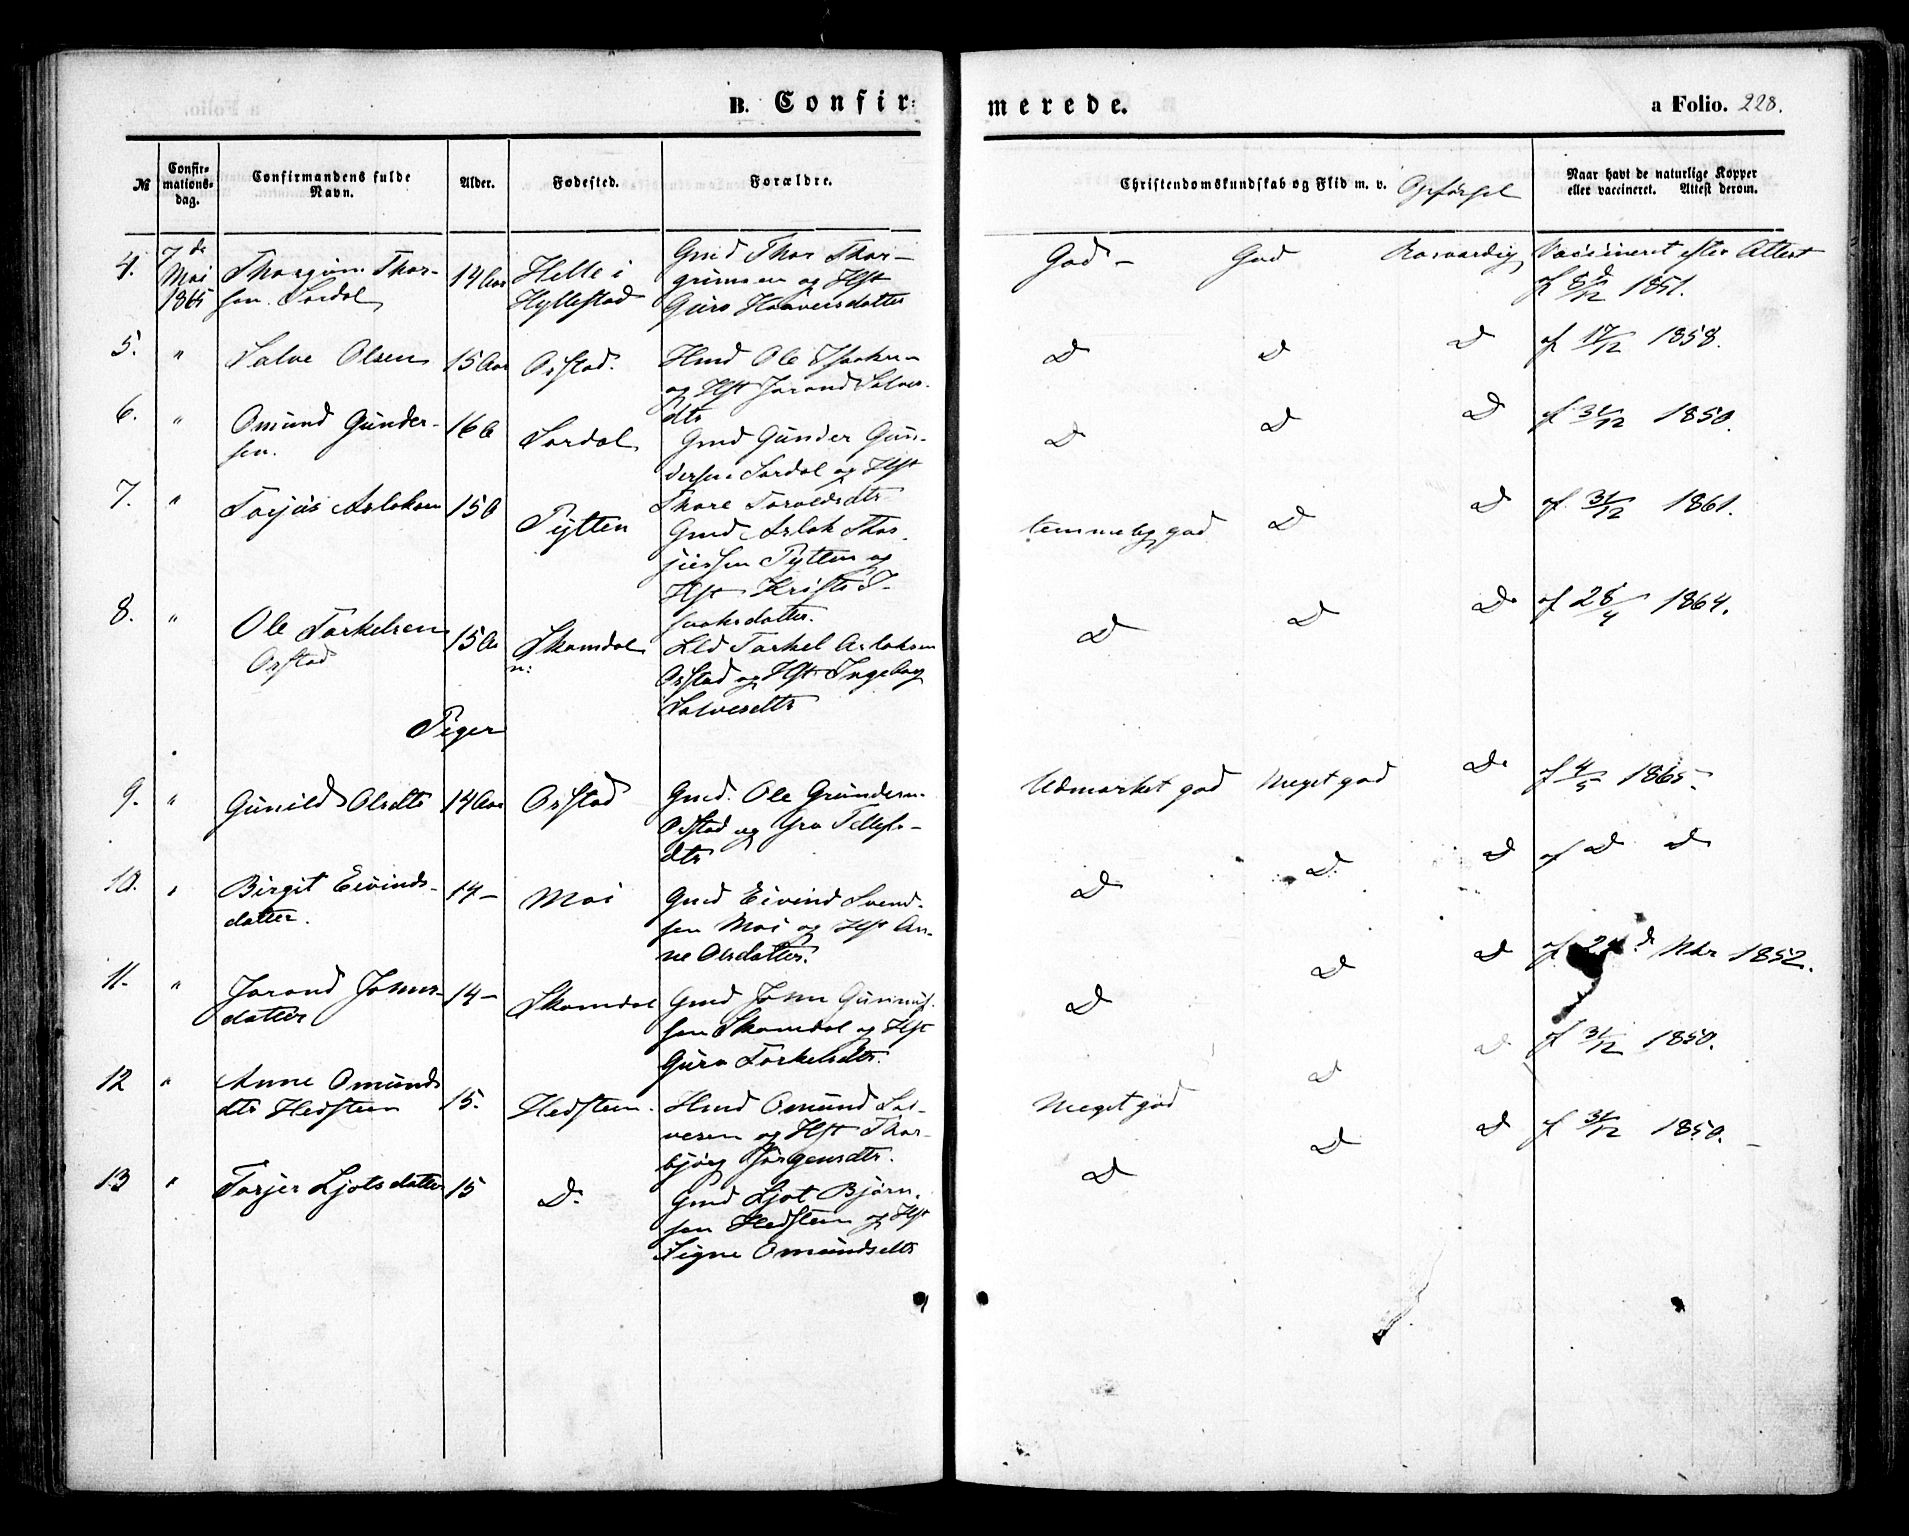 B. Confir: merede. a Folio. 228.
№ Confir- mations- dag. Confirmandens fulde Navn. Alder. Fødested. Forældre. Christendomskundskab og Flid m. v. Opførsel Naar havt de naturlige Kopper eller vaccineret. Attest derom.
4. 7de Mai 1865 Thorgrim Thor-
sen. Sordal 14 Aar Helle i
Hyllestad Gmd Thor Thor-
grimsen og Hst
Guro Haaversdatter God - God Rosværdig Vaccineret efter Attest
af 8/12 1851.
5. " Salve Olsen 15 Aar Osstad. Hmd Ole
og Hst Jorand Salves-
dtr D D D af 17/12 1858.
6. " Omund Gunder-
sen. 16 A Sordal Gmd Gunder Gun-
dersen Sordal og Hst
Thore Toroldsdtr D D D af 31/12 1850.
7. " Torjus Aslaksen 15 A Pytten Gmd Aslak Thor-
jussen Pytten og
Hst Kristi I-
saaksdatter. temmelig god D D af 31/12 1861.
8. " Ole Torkelsen
Osstad 15 A Skomdal
n: Lld Torkel Aslaksen
Osstad og Hst Ingeborg
Salvesdtr D D D af 28/4 1864.
Piger
9. " Gunild Olsdtr 14 Aar Osstad Gmd. Ole Gundersen
Osstad og Gro Tellefs-
dtr Udmærket god Meget god D af 4/5 1865.
10. " Birgit Eivinds-
datter. 14 - Moi Gmd Eivind Svend-
sen Moi og Hst An-
ne Olsdatter. D D D af D D
11. " Jorand Johns-
datter 14 - Skomdal Gmd John Gunnuf-
sen Skomdal og Hst
Guro Torkelsdtr. D D D af de Nbr 1852.
12 " Anne Omunds
dtr Hedsteen 15. Hedsteen. Hmd Omund Sal-
vesen og Hst Thor-
bjørg Jørgensdtr. Meget god D D af 31/12 1850.
13 " Torjer Ljotsdatter 15 D. Gmd Ljot Bjørn-
sen Hedsteen og Hst
Signe Omundsdtr D D D af 31/12 1850. -